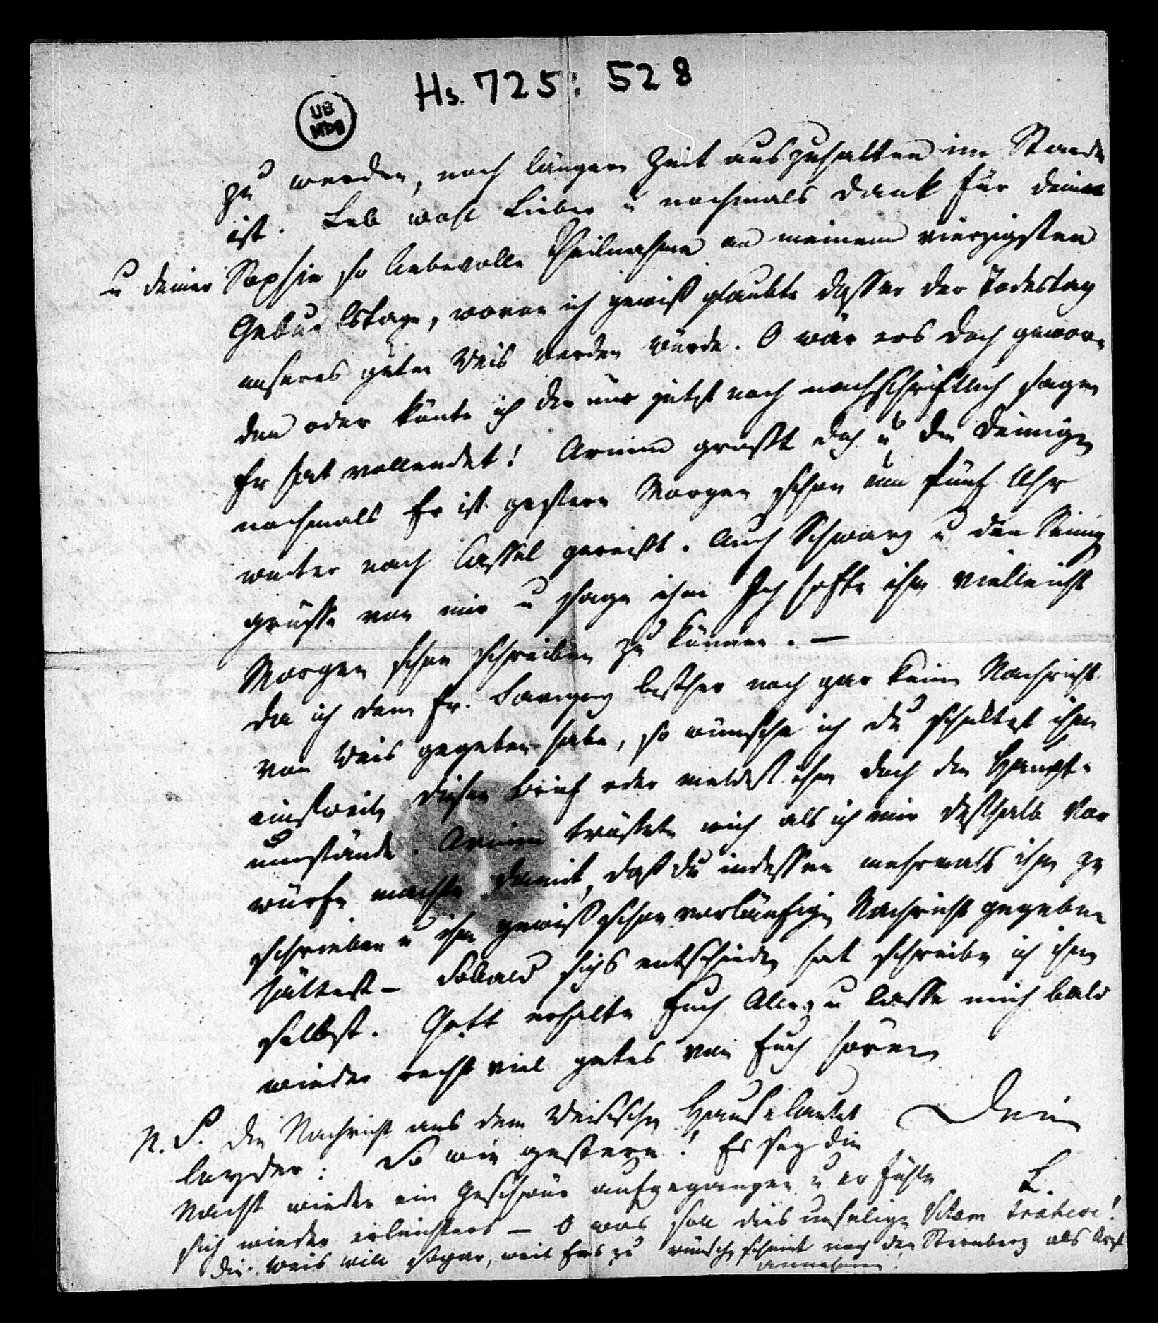 Hs. 725: 528
UB MBG
zu werden, noch längere Zeit auszuhalten im Stande
ist. Leb wohl Lieber u nochmals Dank für deine
u deiner Sophie so liebevolle Theilnahme an meinem vierzigsten
Geburtstage, wovon ich gewiß glaubte daß er der Todestag
unseres guten Weis werden würde. O wär ers doch gewor-
den oder könte ich dir nur jetzt noch nachschriftlich sagen
Er hat vollendet! Arnim grüßt dich u die Deinigen
nochmals Er ist gestern Morgen schon um fünf Uhr
weiter nach Cassel gereißt. Auch Schwarz u den Seinig
grüsse von mir u sage ihm Ich hoffe ihm vielleicht
Morgen schon schreiben zu können. —
Da ich dem Fr. Savigny bisher noch gar keine Nachricht
von Weis gegeben habe, so wünsche ich du schicktest ihm
einstweilen diesen Brief oder meldest ihm doch die Haupt-
umstände. Arnim tröstete mich als ich mir deßhalb Vor
würfe machte damit, daß du indessen mehrmals ihm ge
schrieben u ihm gewiß schon vorläufige Nachricht gegeben
hättest — Sobald sichs entschieden hat schreibe ich ihm
selbst. Gott erhalte Euch Alle u lasse mich bald
wieder recht viel gutes von Euch hören
Dein
L.
N. S. Die Nachricht aus dem Weisischen Hause lautet
leyder: So wie gestern! Es sey die
Nacht wieder ein Geschwür aufgegangen u er fühle
sich wieder erleichtert — O was soll dies unselige vitam trahere!
Die Weis will sogar, weil Er's zu wünschen scheint noch den Sternberg als Arzt
annehmen.